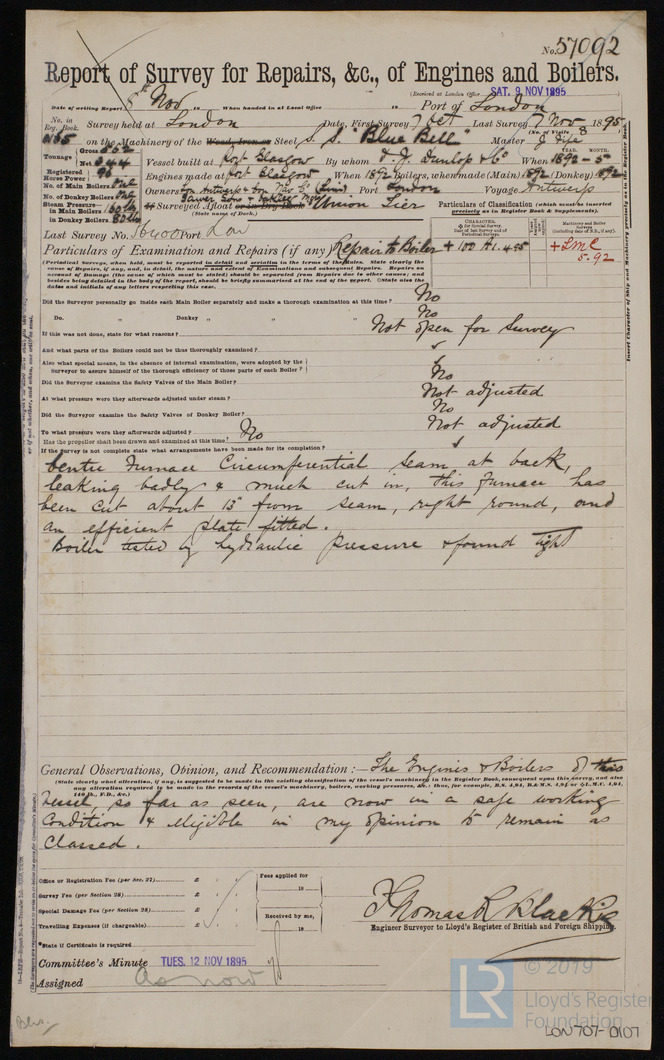 No. 57092
Report of Survey for Repairs, &c., of Engines and Boilers.
(Received at London Office SAT. 9 NOV 1895
Date of writing Report 8th Nov 18 When handed in at Local Office 18 Port of London
No. in Reg. Book. Survey held at London Date, First Survey 7 Oct Last Survey 7 Nov 1895
(No. of Visits 8
on the Machinery of the Wood, Iron or Steel S.S. "Blue Bell" Master J Fife
Tonnage Gross 552 Net 344 Vessel built at Port Glasgow By whom D. J. Dunlop & Co When 1892 - 5
YEAR. MONTH.
Registered Horse Power 96 Engines made at Port Glasgow When 1892 Boilers, when made (Main) 1892 (Donkey) 1892
No. of Main Boilers One Owners Port London Voyage Antwerp
No. of Donkey Boilers One
Steam Pressure in Main Boilers 160 lb If Surveyed Afloat or in Dry Dock Union Tier
in Donkey Boilers 80 lb (State name of Dock.)
Particulars of Classification (which must be inserted precisely as in Register Book & Supplements).
Last Survey No. 56400 Port Lon
Particulars of Examination and Repairs (if any) Repair to Boiler
+ 100 A1. 4.95
+ LMC 5.92
(Periodical Surveys, when held, must be reported in detail and seriatim in the terms of the Rules. State clearly the
cause of Repairs, if any, and, in detail, the nature and extent of Examinations and subsequent Repairs. Repairs on
account of Damage (the cause of which must be stated) should be separated from Repairs due to other causes; and
besides being detailed in the body of the report, should be briefly summarised at the end of the report. State also the
dates and initials of any letters respecting this case.
Did the Surveyor personally go inside each Main Boiler separately and make a thorough examination at this time? No
Do. „ Donkey „ „ „ No
If this was not done, state for what reasons? Not open for survey
And what parts of the Boilers could not be thoroughly examined?
Also what special means, in the absence of internal examination, were adopted by the
Surveyor to assure himself of the thorough efficiency of those parts of each Boiler?
Did the Surveyor examine the Safety Valves of the Main Boiler? No
At what pressure were they afterwards adjusted under steam? Not adjusted
Did the Surveyor examine the Safety Valves of Donkey Boiler? No
To what pressure were they afterwards adjusted? Not adjusted
Has the propeller shaft been drawn and examined at this time? No
If the Survey is not complete state what arrangements have been made for its completion?
Centre Furnace Circumferential seam at back,
leaking badly & much cut in, this Furnace has
been cut about 13" from seam, right round, and
an efficient plate fitted.
Boiler tested by hydraulic pressure & found tight
General Observations, Opinion, and Recommendation:— The Engines & Boilers of this
(State clearly what alteration, if any, is suggested to be made in the existing classification of the vessel's machinery in the Register Book, consequent upon this survey, and also
any alteration required to be made in the records of the vessel's machinery, boilers, working pressures, &c.: thus, for example, B.S. 4,94, B.&M.S. 4,94 or +L.M.C. 4,94,
140 lb., F.D., &c.)
vessel, so far as seen, are now in a safe working
condition & eligible in my opinion to remain as
Classed.
Office or Registration Fee (per Sec. 27) £
Survey Fee (per Section 28) £
Special Damage Fee (per Section 28) £
Travelling Expenses (if chargeable) £
Fees applied for
18
Received by me,
18
Thomas R Blackie
Engineer Surveyor to Lloyd's Register of British and Foreign Shipping.
*State if Certificate is required
Committee's Minute TUES. 12 NOV 1895
Assigned As now
LR
© 2019
Lloyd's Register
Foundation
LON 707-0107